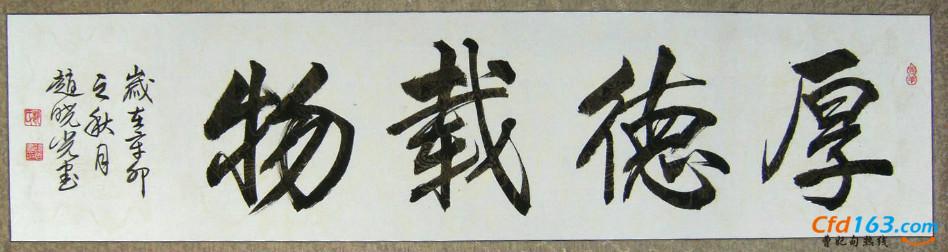 厚德載物
歲在辛卯
之秋月
趙曉光書
Cfd163.com
曹妃甸热线